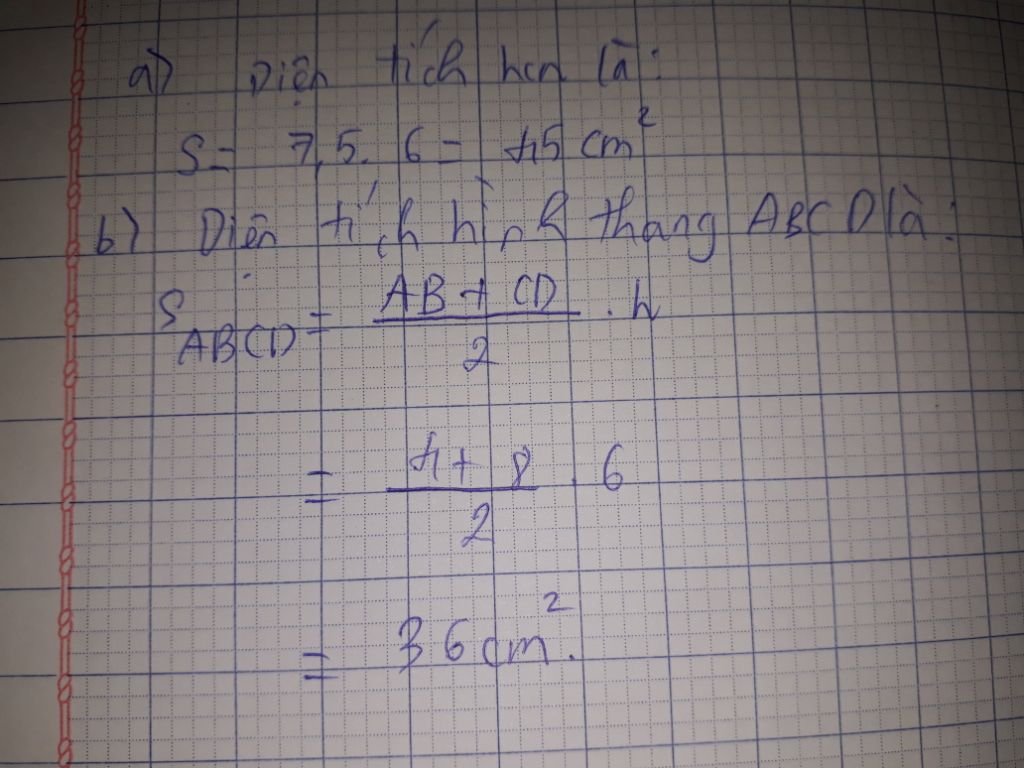 a) Diện tích hcn là:
S = 7,5 . 6 = 45 cm²
b) Diện tích hình thang ABCD là:
S ABCD = (AB + CD)/2 . h
= (4 + 8)/2 . 6
= 36 cm².